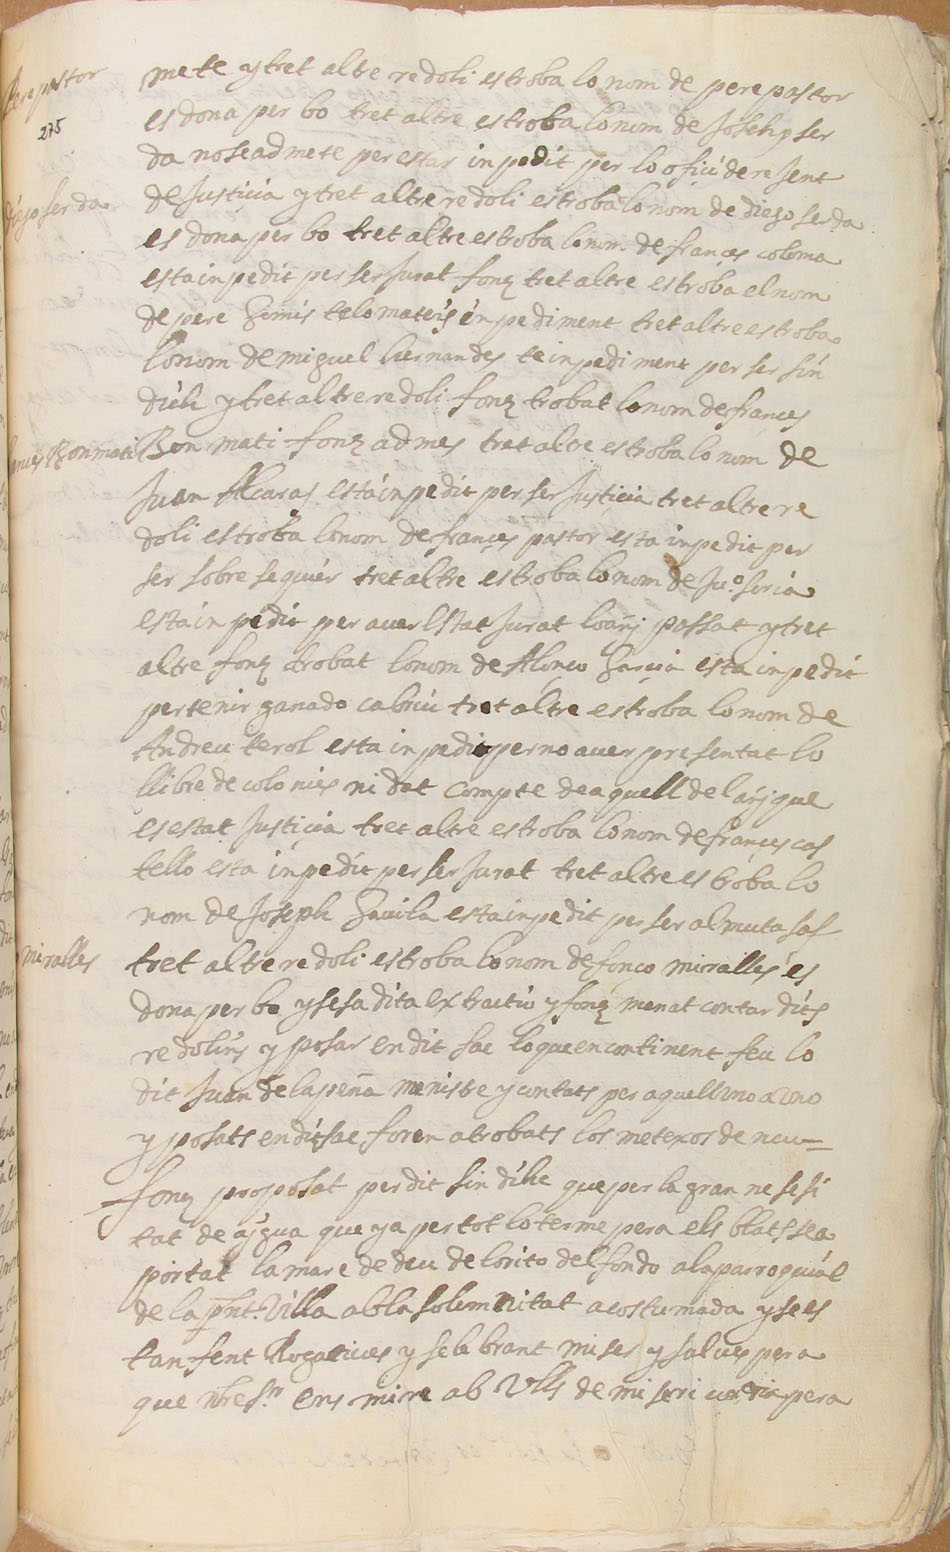 Pere pastor
275
mete y tret altre redoli es troba lo nom de pere pastor
es dona per bo tret altre es troba lo nom de Joseph ser
da no se admete per estar inpedit per lo ofiçi de resent
Diego serda
de Justiçia y tret altre redoli es troba lo nom de diego serda
es dona per bo tret altre es troba lo nom de françes coloma
esta inpedit per ser Jurat fonȝ tret altre es troba el nom
de pere te lo mateis inpediment tret altre es troba
lo nom de miguel hernandes te inpediment per ser sin
dich y tret altre redoli fonȝ trobat lo nom de frances
frances Bonmati
Bonmati fonȝ admes tret altre es troba lo nom de
Juan Alcaras esta inpedit per ser Justiçia tret altre re
doli es troba lo nom de françes pastor esta inpedit per
ser sobresequier tret altre es troba lo nom de Ju.º soria
esta inpedit per auer estat Jurat lo anÿ passat y tret
altre fonȝ trobat lo nom de Alonço Garçia esta inpedit
per tenir ganado cabriu tret altre es troba lo nom de
Andreu terol esta inpedit per no auer presentat lo
llibre de colonies ni dat compte de aquell del anÿ que
es estat Justiçia tret altre es troba lo nom de françes cas
tello esta inpedit per ser Jurat tret altre es troba lo
nom de Joseph Gauila esta inpedit per ser almutasaf
miralles
tret altre redoli es troba lo nom de fonco miralles es
dona per bo y sesa dita extractio y fonȝ manat contar dits
redolins y posar en dit sac lo que encontinent feu lo
dit Juan de la peña ministre y contats per aquell uno a uno
y posats en dit sac foren atrobats los metexos de nou
fonȝ proposat per dit sindich que per la gran nesesi
tat de aygua que ya per tot lo terme pera els blats sea
portat la mare de deu de lorito del fondo a la parroquial
de la pñt. Villa ab la solemnitat acostumada y se es
tan fent Rogatiues y selebrant mises y salues pera
que nŕe Sʳ ens mire ab Ulls de misericordia pera